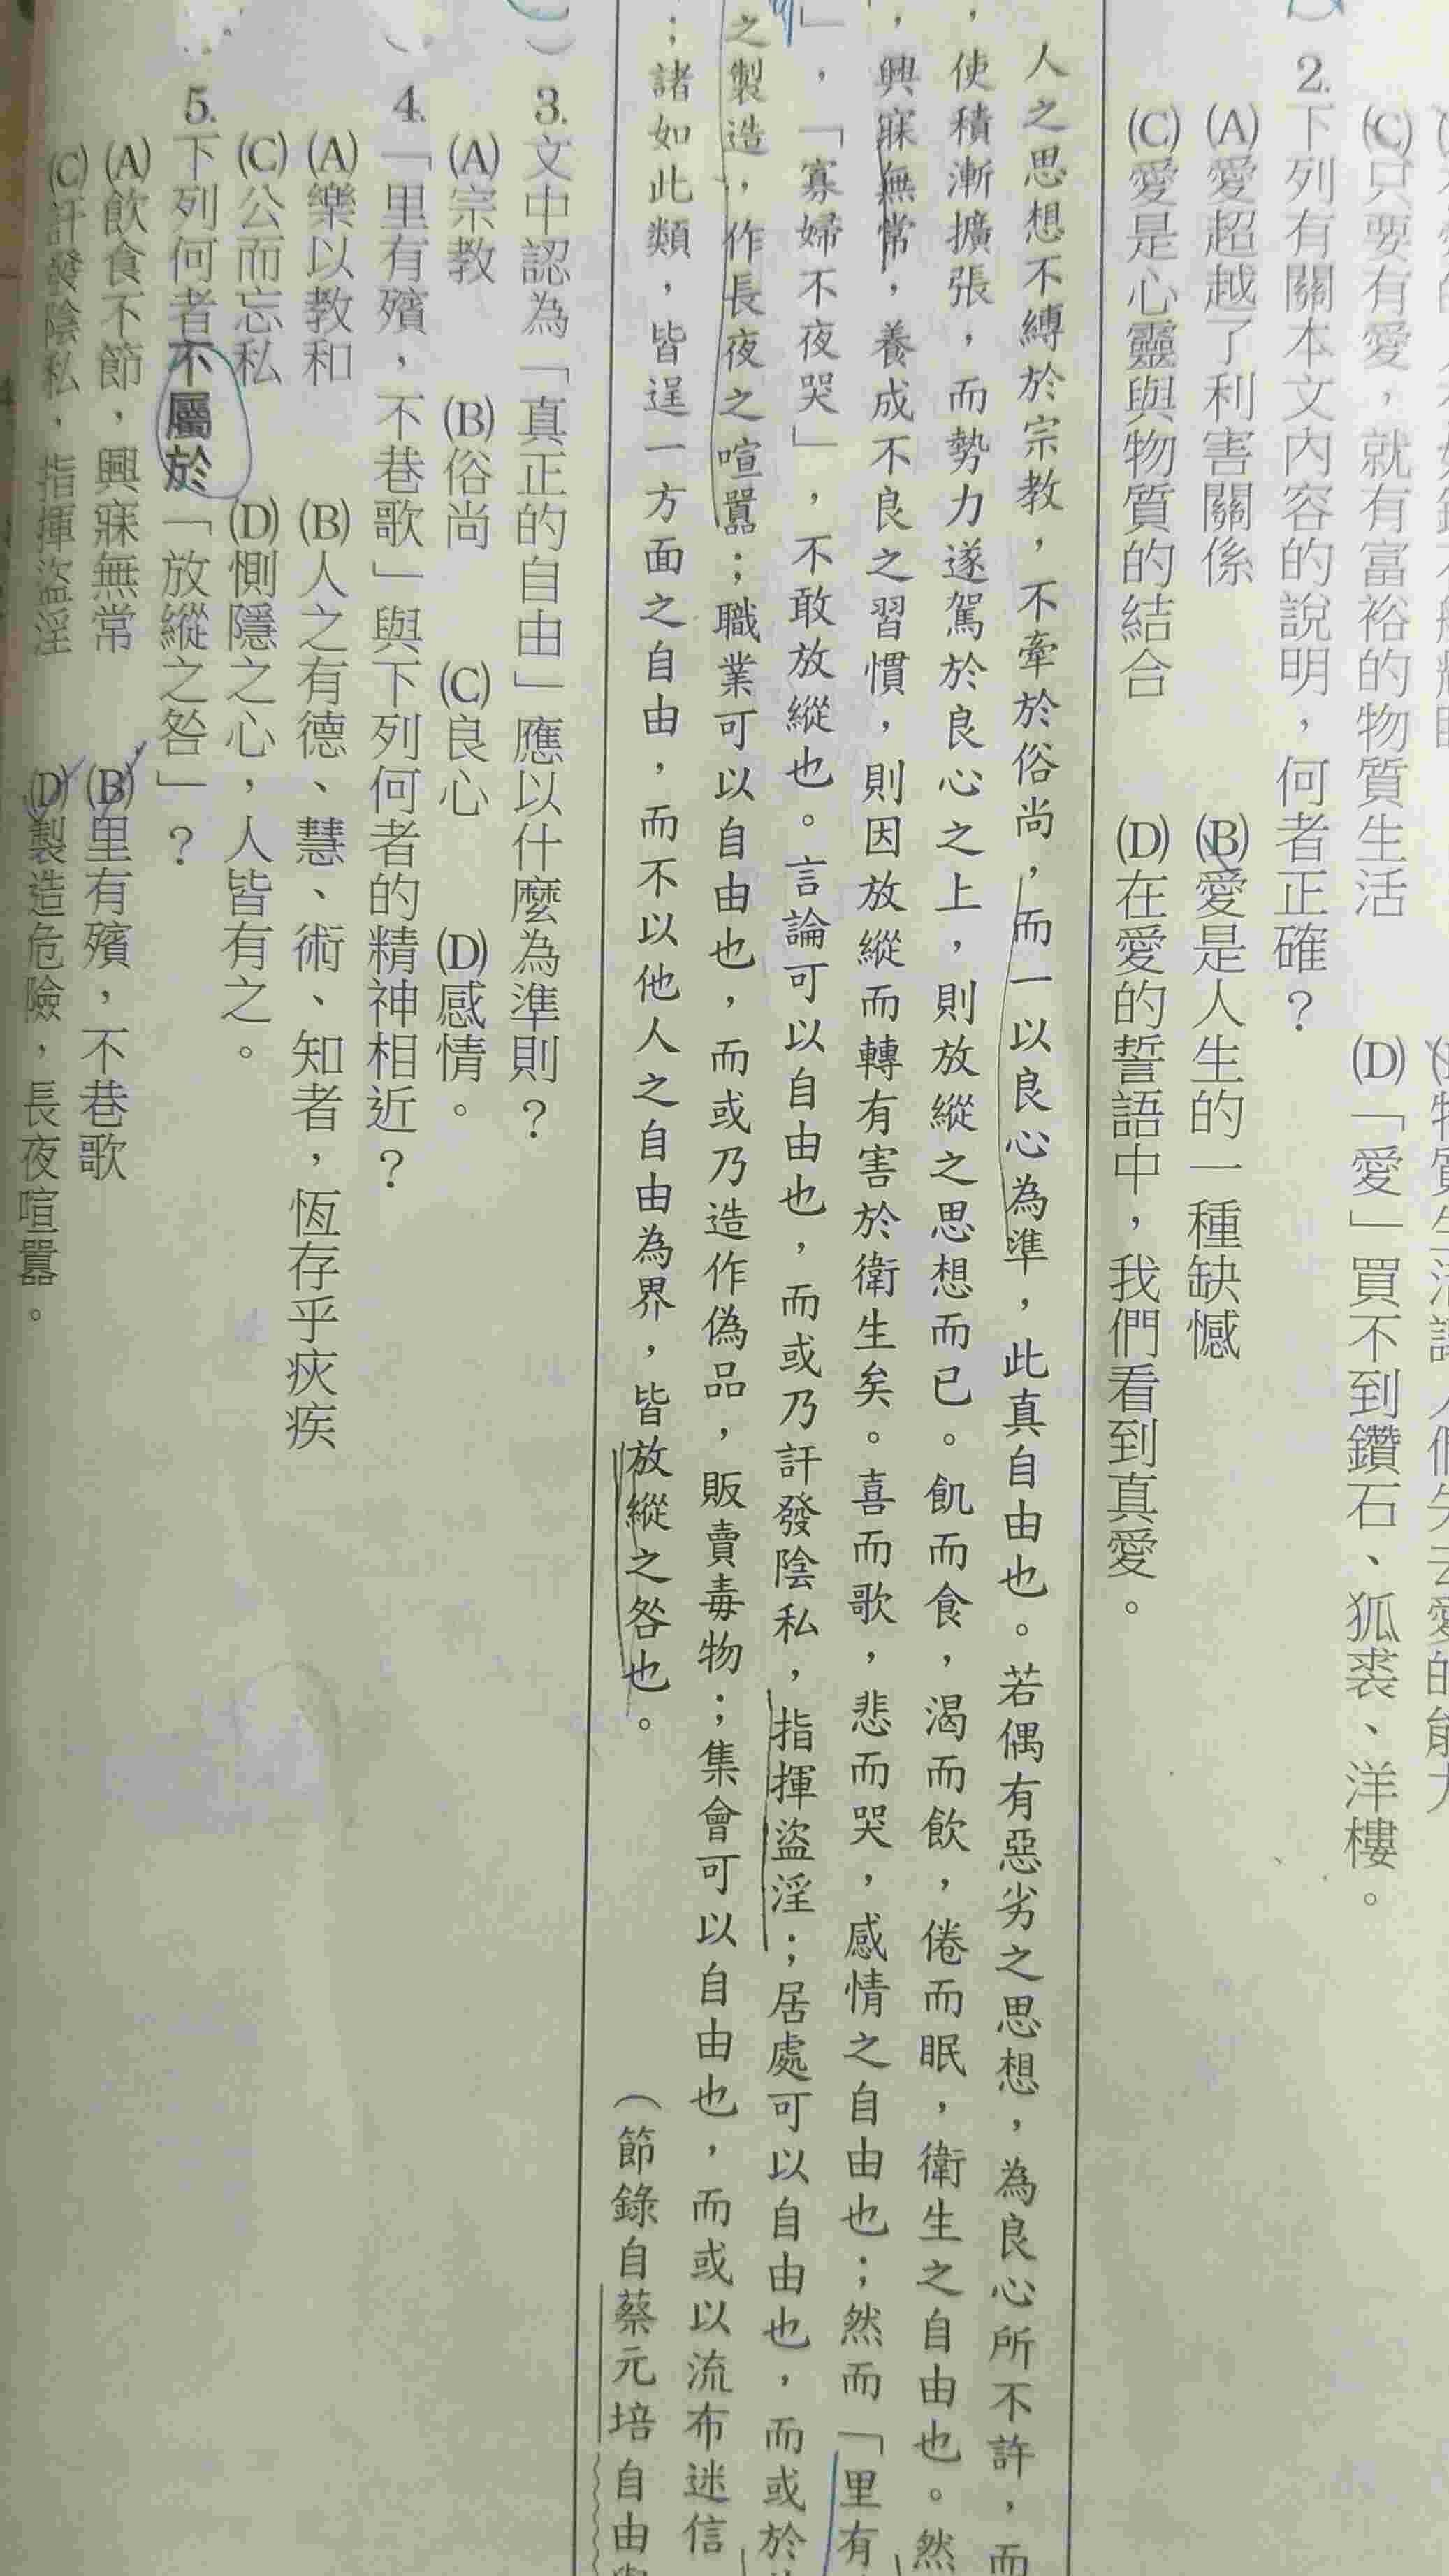 (C)只要有愛，就有富裕的物質生活　(D)「愛」買不到鑽石、狐裘、洋樓。
2.下列有關本文內容的說明，何者正確？
(A)愛超越了利害關係　(B)愛是人生的一種缺憾
(C)愛是心靈與物質的結合　(D)在愛的誓語中，我們看到真愛。
人之思想不縛於宗教，不牽於俗尚，而一以良心為準，此真自由也。若偶有惡劣之思想，為良心所不許，而
，使積漸擴張，而勢力遂駕於良心之上，則放縱之思想而已。飢而食，渴而飲，倦而眠，衛生之自由也。然
，興寐無常，養成不良之習慣，則因放縱而轉有害於衛生矣。喜而歌，悲而哭，感情之自由也；然而「里有
」，「寡婦不夜哭」，不敢放縱也。言論可以自由也，而或乃訐發陰私，指揮盜淫；居處可以自由也，而或於
之製造，作長夜之喧囂；職業可以自由也，而或乃造作偽品，販賣毒物；集會可以自由也，而或以流布迷信
；諸如此類，皆逞一方面之自由，而不以他人之自由為界，皆放縱之咎也。
（節錄自蔡元培自由與
) 3.文中認為「真正的自由」應以什麼為準則？
(A)宗教　(B)俗尚　(C)良心　(D)感情。
( ) 4.「里有殯，不巷歌」與下列何者的精神相近？
(A)樂以教和　(B)人之有德、慧、術、知者，恆存乎疢疾
(C)公而忘私　(D)惻隱之心，人皆有之。
5.下列何者不屬於「放縱之咎」？
(A)飲食不節，興寐無常　(B)里有殯，不巷歌
(C)訐發陰私，指揮盜淫　(D)製造危險，長夜喧囂。